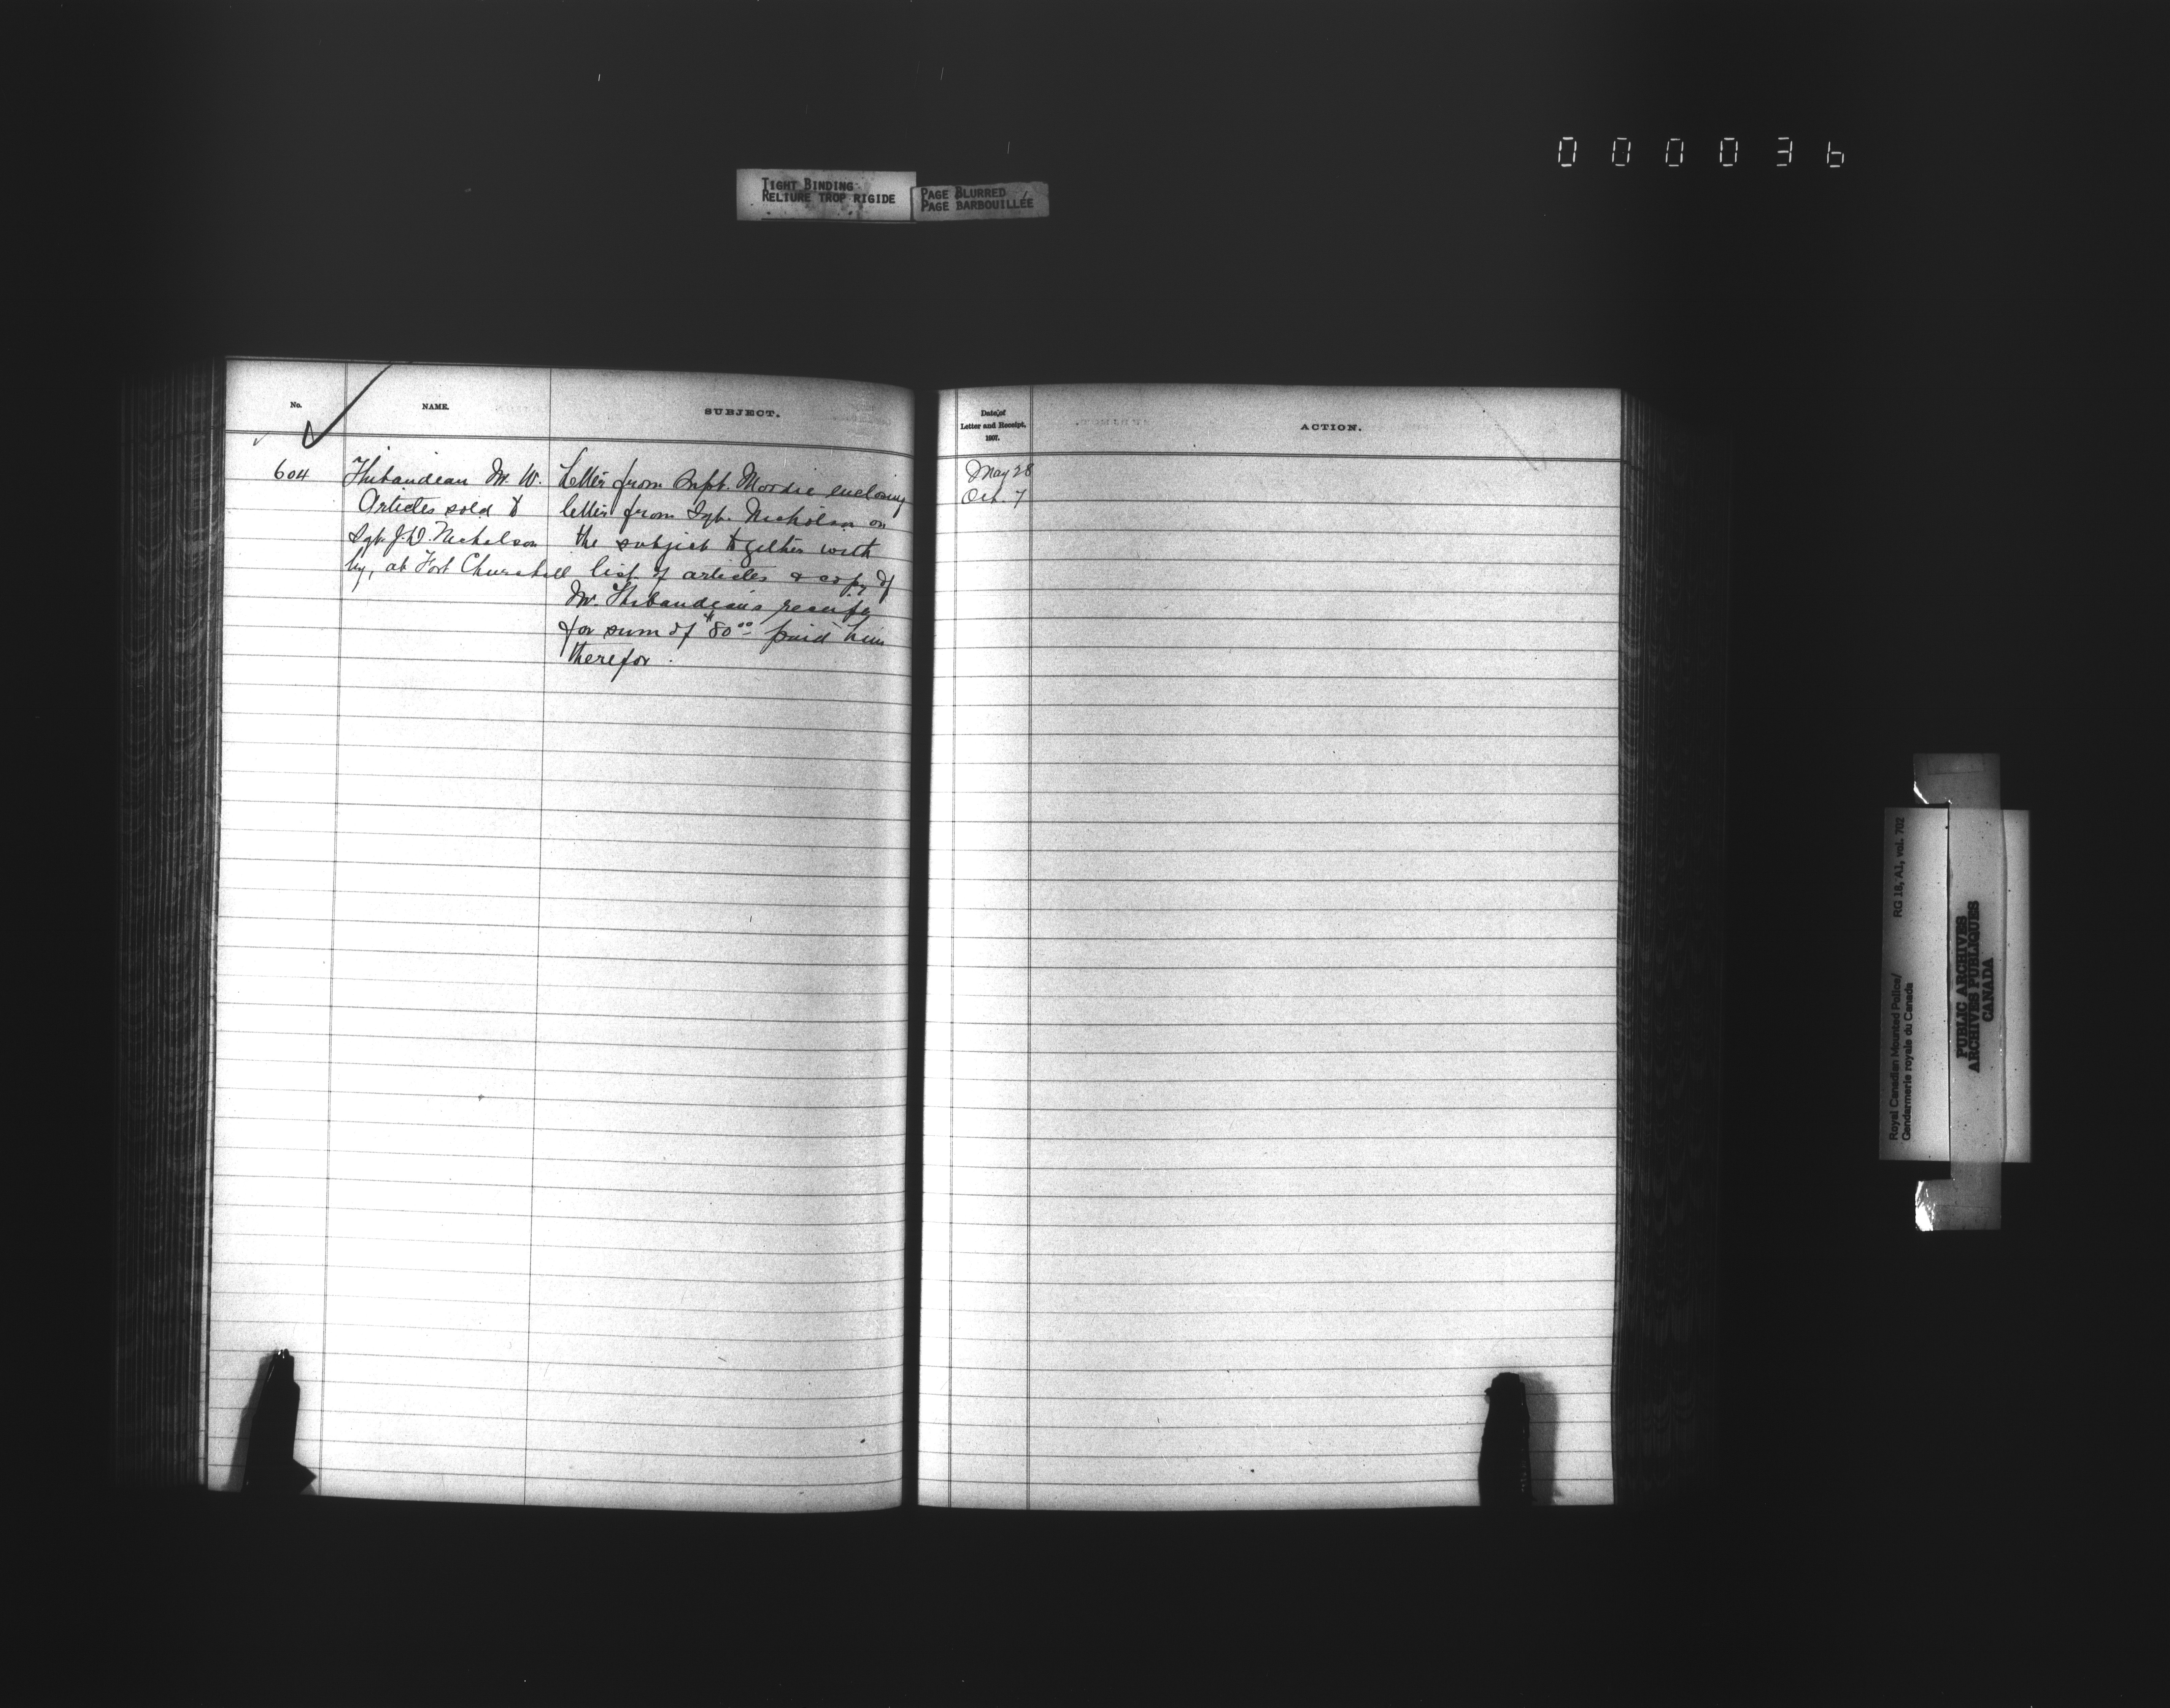 000036
TIGHT BINDING
RELIURE TROP RIGIDE
PAGE BLURRED
PAGE BARBOUILLÉE
No.
NAME.
SUBJECT.
604
Thibaudeau M. W.
Articles sold to
Sgt. J.D. Nicholson
by, at Fort Churchill
Letter from Supt. Moodie enclosing
letter from Sgt. Nicholson on
the subject together with
list of articles & copy of
Mr. Thibaudeau's receipt
for sum of $80.00 paid him
therefor.
Date of
Letter and Receipt,
1907.
ACTION.
May 28
Oct. 7
Royal Canadian Mounted Police/
Gendarmerie royale du Canada
RG 18, A1, vol. 702
PUBLIC ARCHIVES
ARCHIVES PUBLIQUES
CANADA